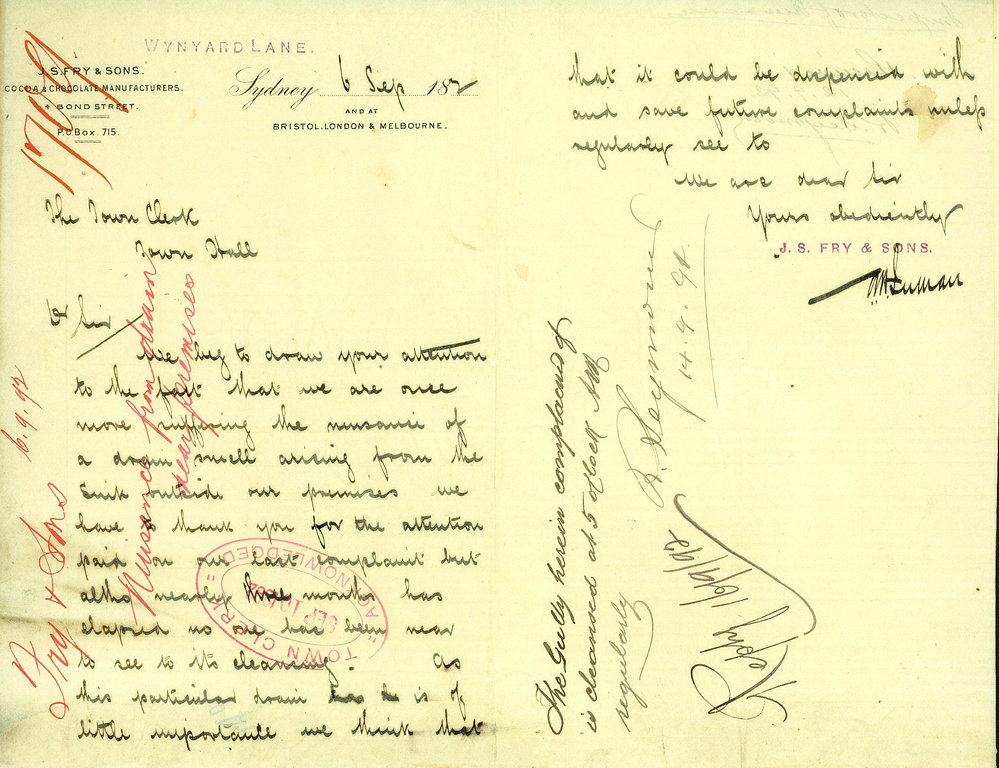 WYNYARD LANE.
J. S. FRY & SONS.
COCOA & CHOCOLATE MANUFACTURERS.
4 BOND STREET.
P.O. Box. 715.
Sydney 6 Sep 1892
AND AT
BRISTOL. LONDON & MELBOURNE.
The Town Clerk
Town Hall
Dr Sir
We beg to draw your attention
to the fact that we are once
more suffering the nuisance of
a drain smell arising from the
Sink outside our premises we
have to thank you for the attention
paid on our last complaint but
altho nearly three months has
elapsed no one has been near
to see to its cleansing. As
this particular drain is of
little importance we think that
that it could be dispensed with
and save future complaints unless
regularly see to
We are dear Sir
Yours obediently
J. S. FRY & SONS.
Fry & Sons 6.9.92
Nuisance from drain
near premises
TOWN CLERK
SEP 10 1892
ACKNOWLEDGED
The Gully herein complained of
is cleansed at 5 o'clock AM
regularly
R. Seymour
14.9.92
Reply 16/9/92